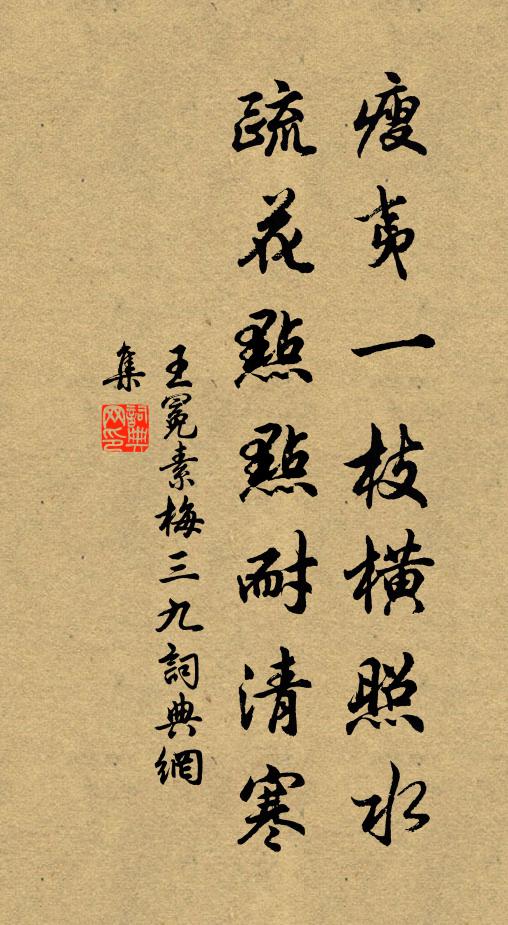 瘦夷一枝橫照水
疏花點點耐清寒
王冕素梅三九詞典網
集
詞典网印